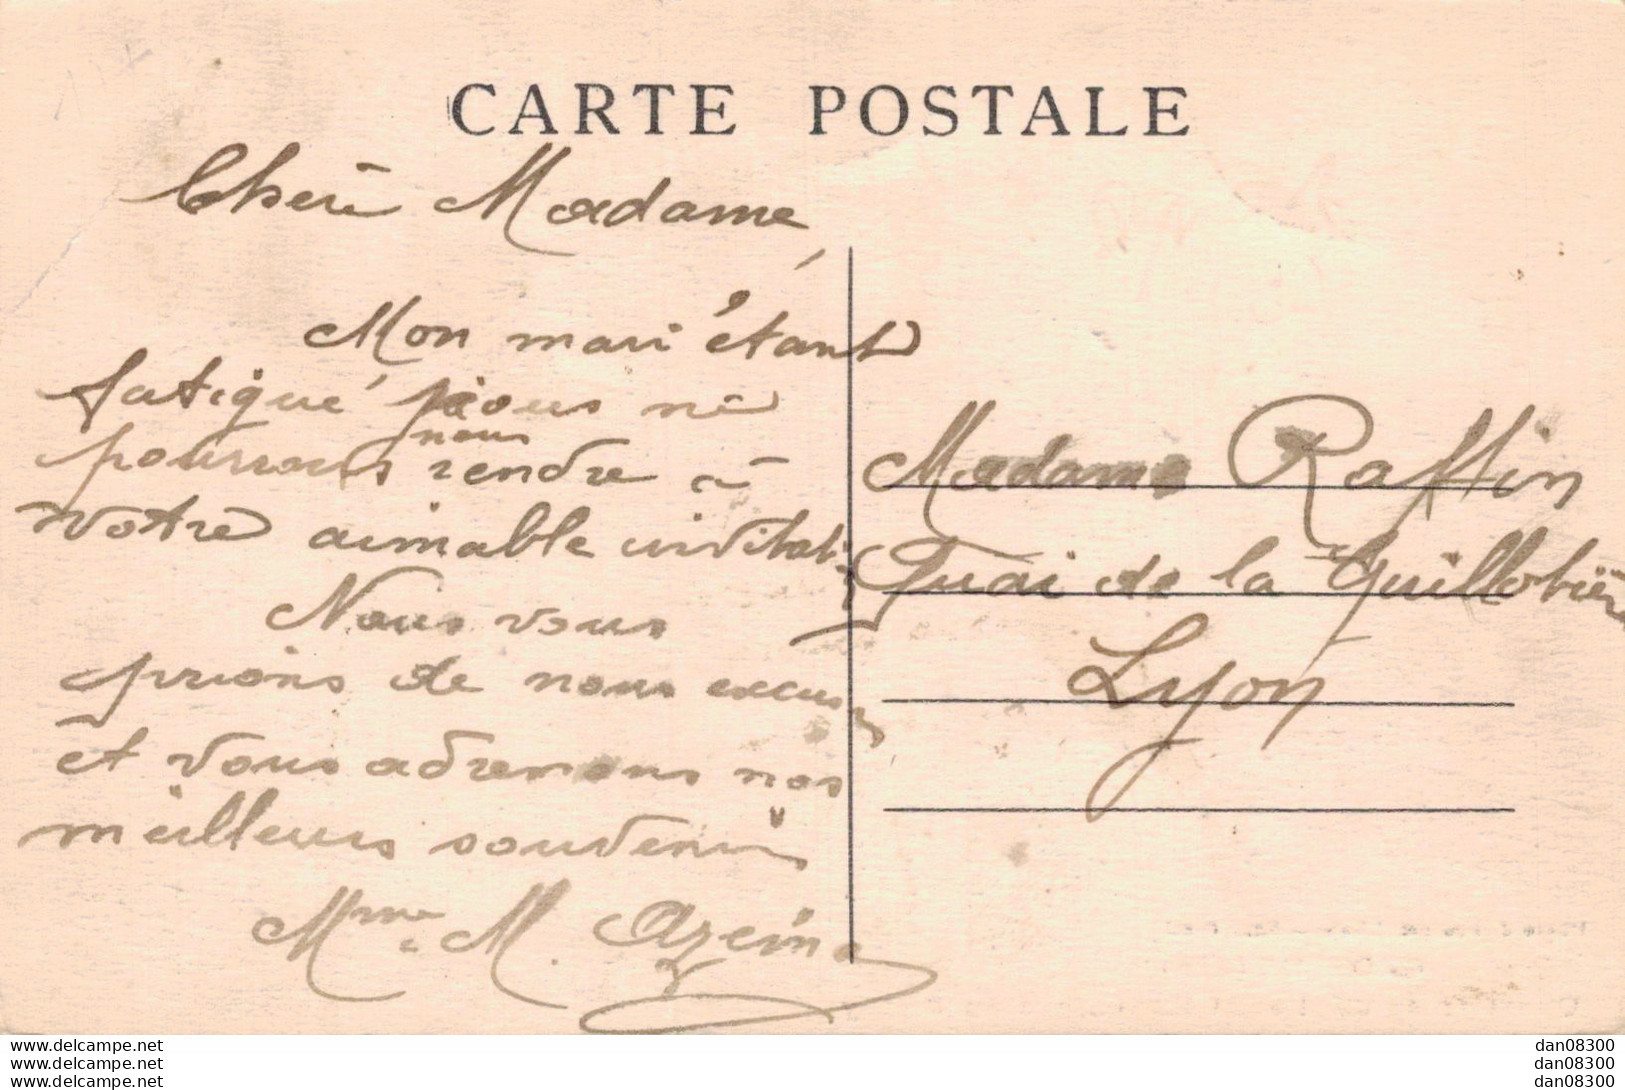 CARTE POSTALE
Chère Madame,
Mon mari étant
fatigué nous ne
pourrons nous rendre à
votre aimable invitation
Nous vous
prions de nous excuser
et vous adressons nos
meilleurs souvenirs
Mme M.
Madame Raffin
Quai de la Guillotière
Lyon
www.delcampe.net
www.delcampe.net
www.delcampe.net
dan08300
dan08300
dan08300